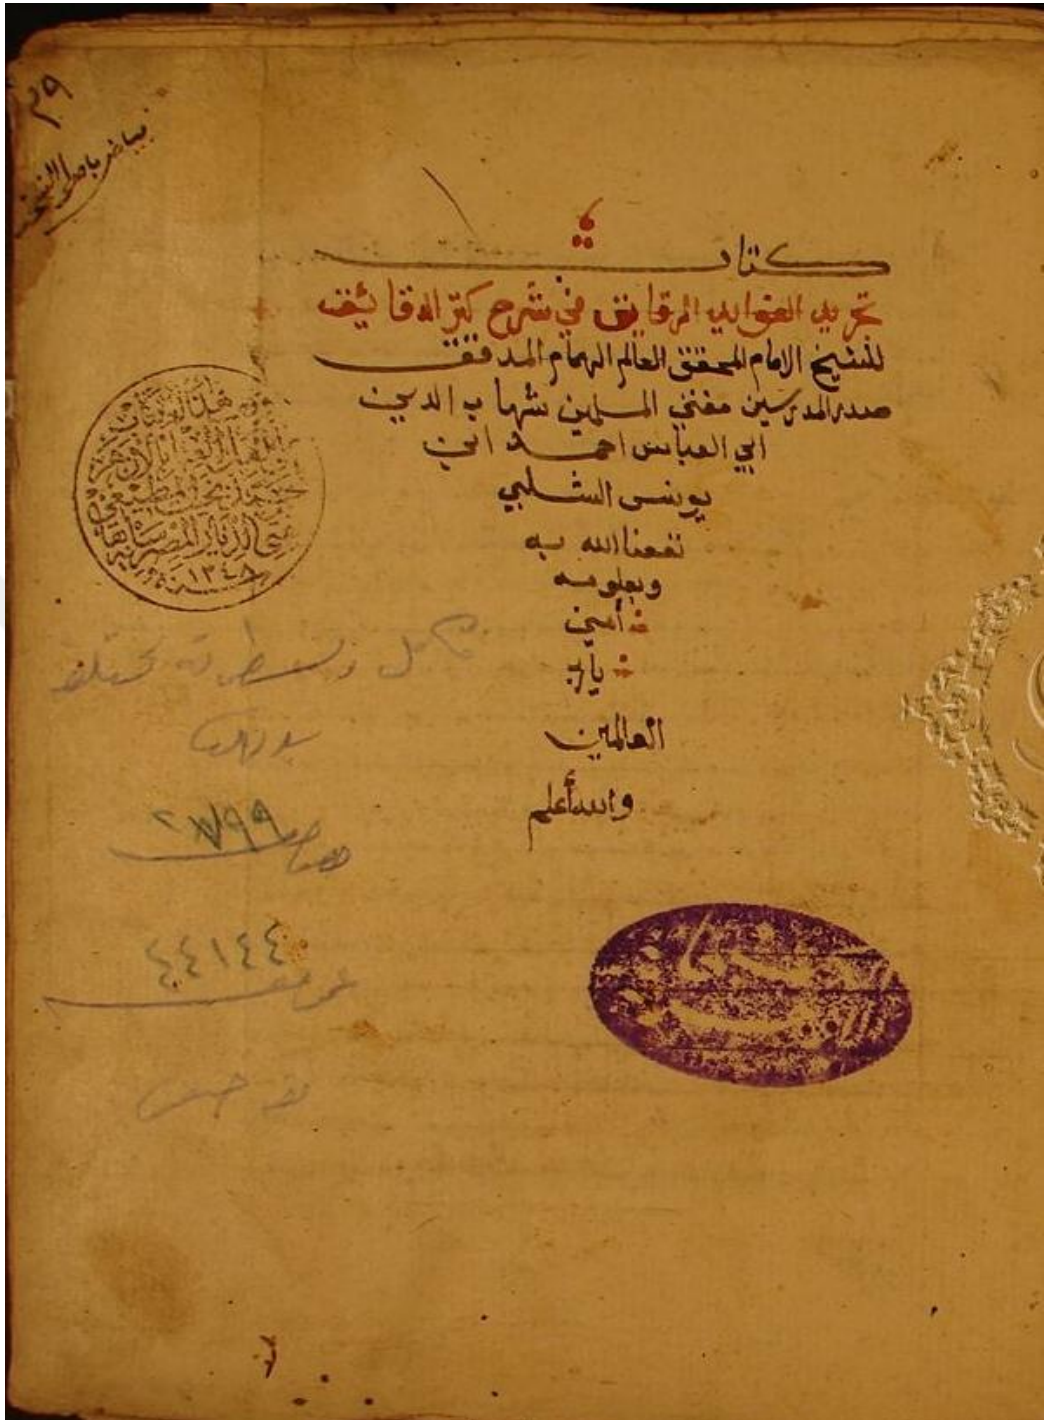 ٣٩
بياض باصل النسخة
كتاب
تجريد الفوايد الرقايق في شرح كنز الدقائق
للشيخ الامام المحقق العالم الهمام المدقق
صدر المدرسين مفتي المسلمين شهاب الدين
ابي العباس احمد ابن
يونس الشلبي
نفعنا الله به
وبعلومه
أمين
يارب
العالمين
والله أعلم
١٣٤٨
خاص ٢٨٩٩
عمومي ٤٤١٤٤
فقه حنفي